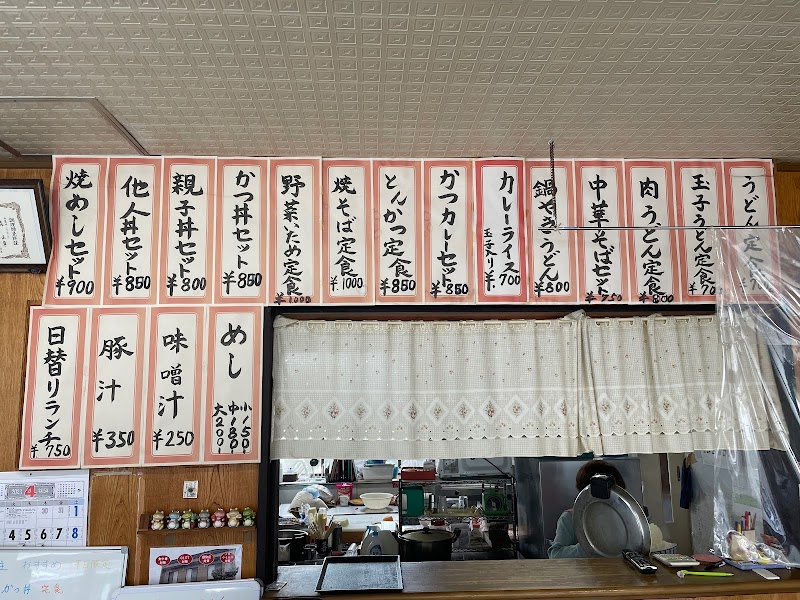 うどん定食
玉子うどん定食
肉うどん定食
¥800
中華そばセット
¥750
鍋やきうどん
¥800
カレーライス
玉子入り¥700
かつカレーセット
¥850
とんかつ定食
¥850
焼そば定食
¥1000
野菜いため定食
¥1000
かつ丼セット
¥850
親子丼セット
¥800
他人丼セット
¥850
焼めしセット
¥900
めし
小150
中180
大200
味噌汁
¥250
豚汁
¥350
日替りランチ
¥750
4
1
4 5 6 7 8
かつ丼 定食